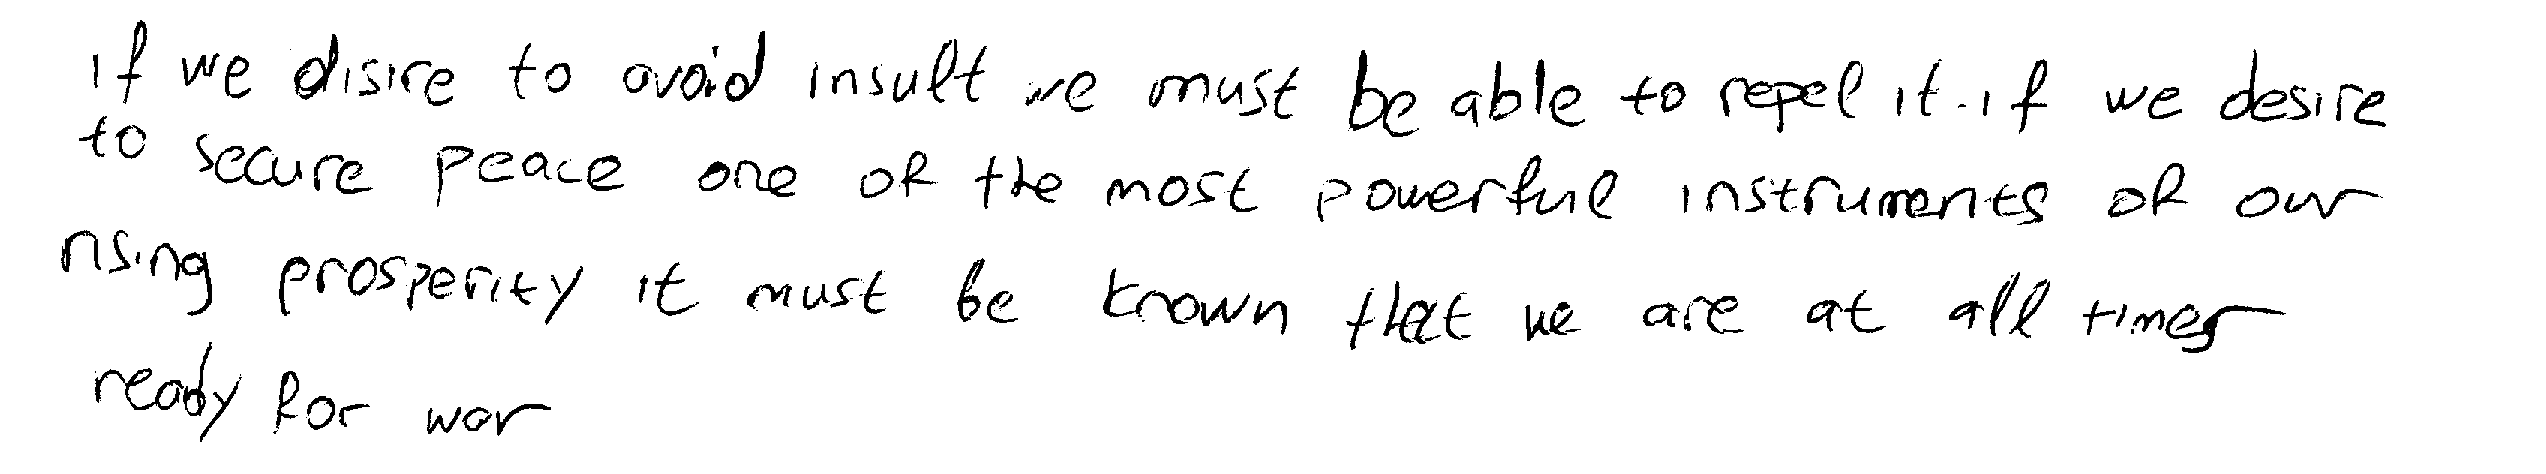 if we disire to avoid insult we must be able to repel it. if we desire
to secure peace one of the most powerful instruments of our
rising prosperity it must be known that we are at all times
ready for war